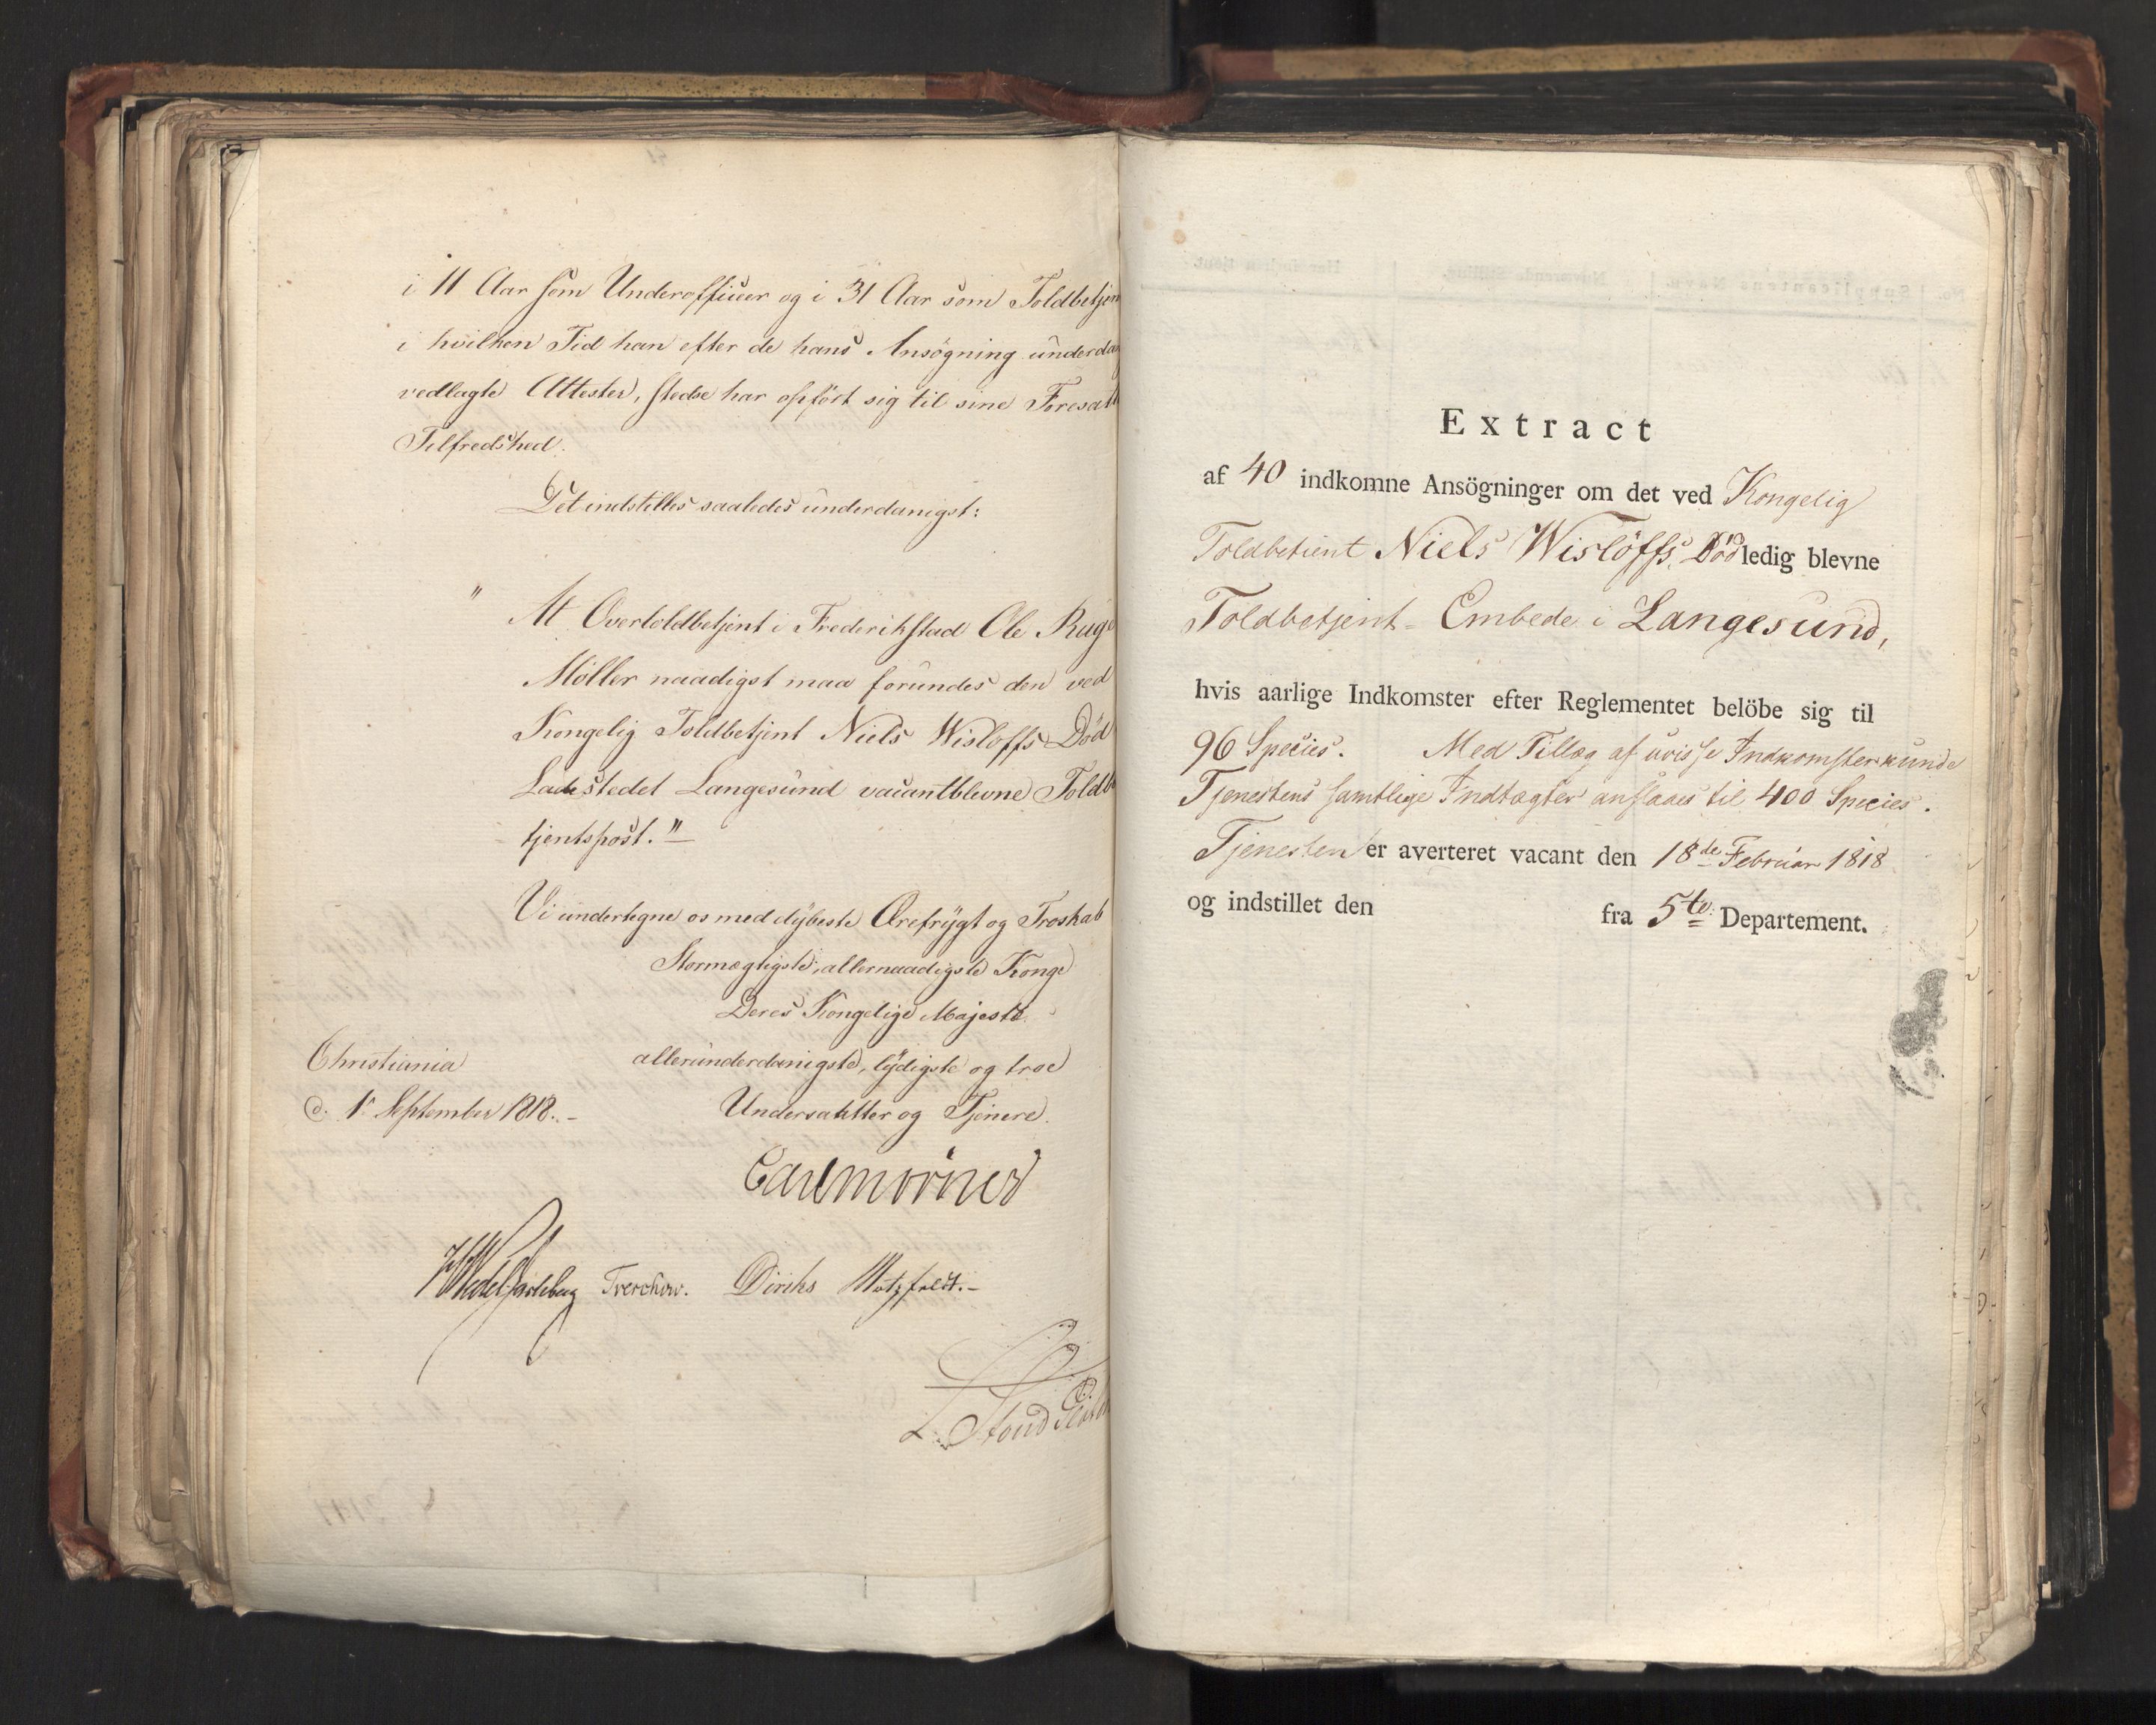 i 11 Aar som Underofficeer og i 31 Aar som Toldbetjen
i hvilken Tid han efter de hans Ansögning underdan
vedlagte Attester, stedse har opført sig til sine Foresatt
Tilfredshed.
Det indstilles saaledes underdanigst:
" At Overtoldbetjent i Frederikstad Ole Ruge
Møller naadigst maa forundes den ved
Kongelig Toldbetjent Niels Wisløffs Død
Ladestedet Langesund vacantblevne Toldbe
tjentspost." –
Vi undertegne os med dybeste Ærefrygt og Troskab
Stormægtigste, allernaadigste Konge
Deres Kongelige Majestæ
allerunderdanigste, lydigste og troe
Undersaatter og Tjenere.
Christiania
d. 1 September 1818. –
Carl Mörner
JHWedel Jarlsberg Treschow. Diriks Motzfeldt. –
L. Stoud Plat
Extract
af 40 indkomne Ansögninger om det ved Kongelig
Toldbetient Niels Wislöffs Død ledig blevne
Toldbetjent-Embede i Langesund,
hvis aarlige Indkomster efter Reglementet belöbe sig til
96 Species. Med Tillæg af uvisse Indkomster kunde
Tjenestens samtlige Indtægter anslaaes til 400 Species.
Tjenesten er averteret vacant den 18de Februar 1818
og indstillet den fra 5te Departement.